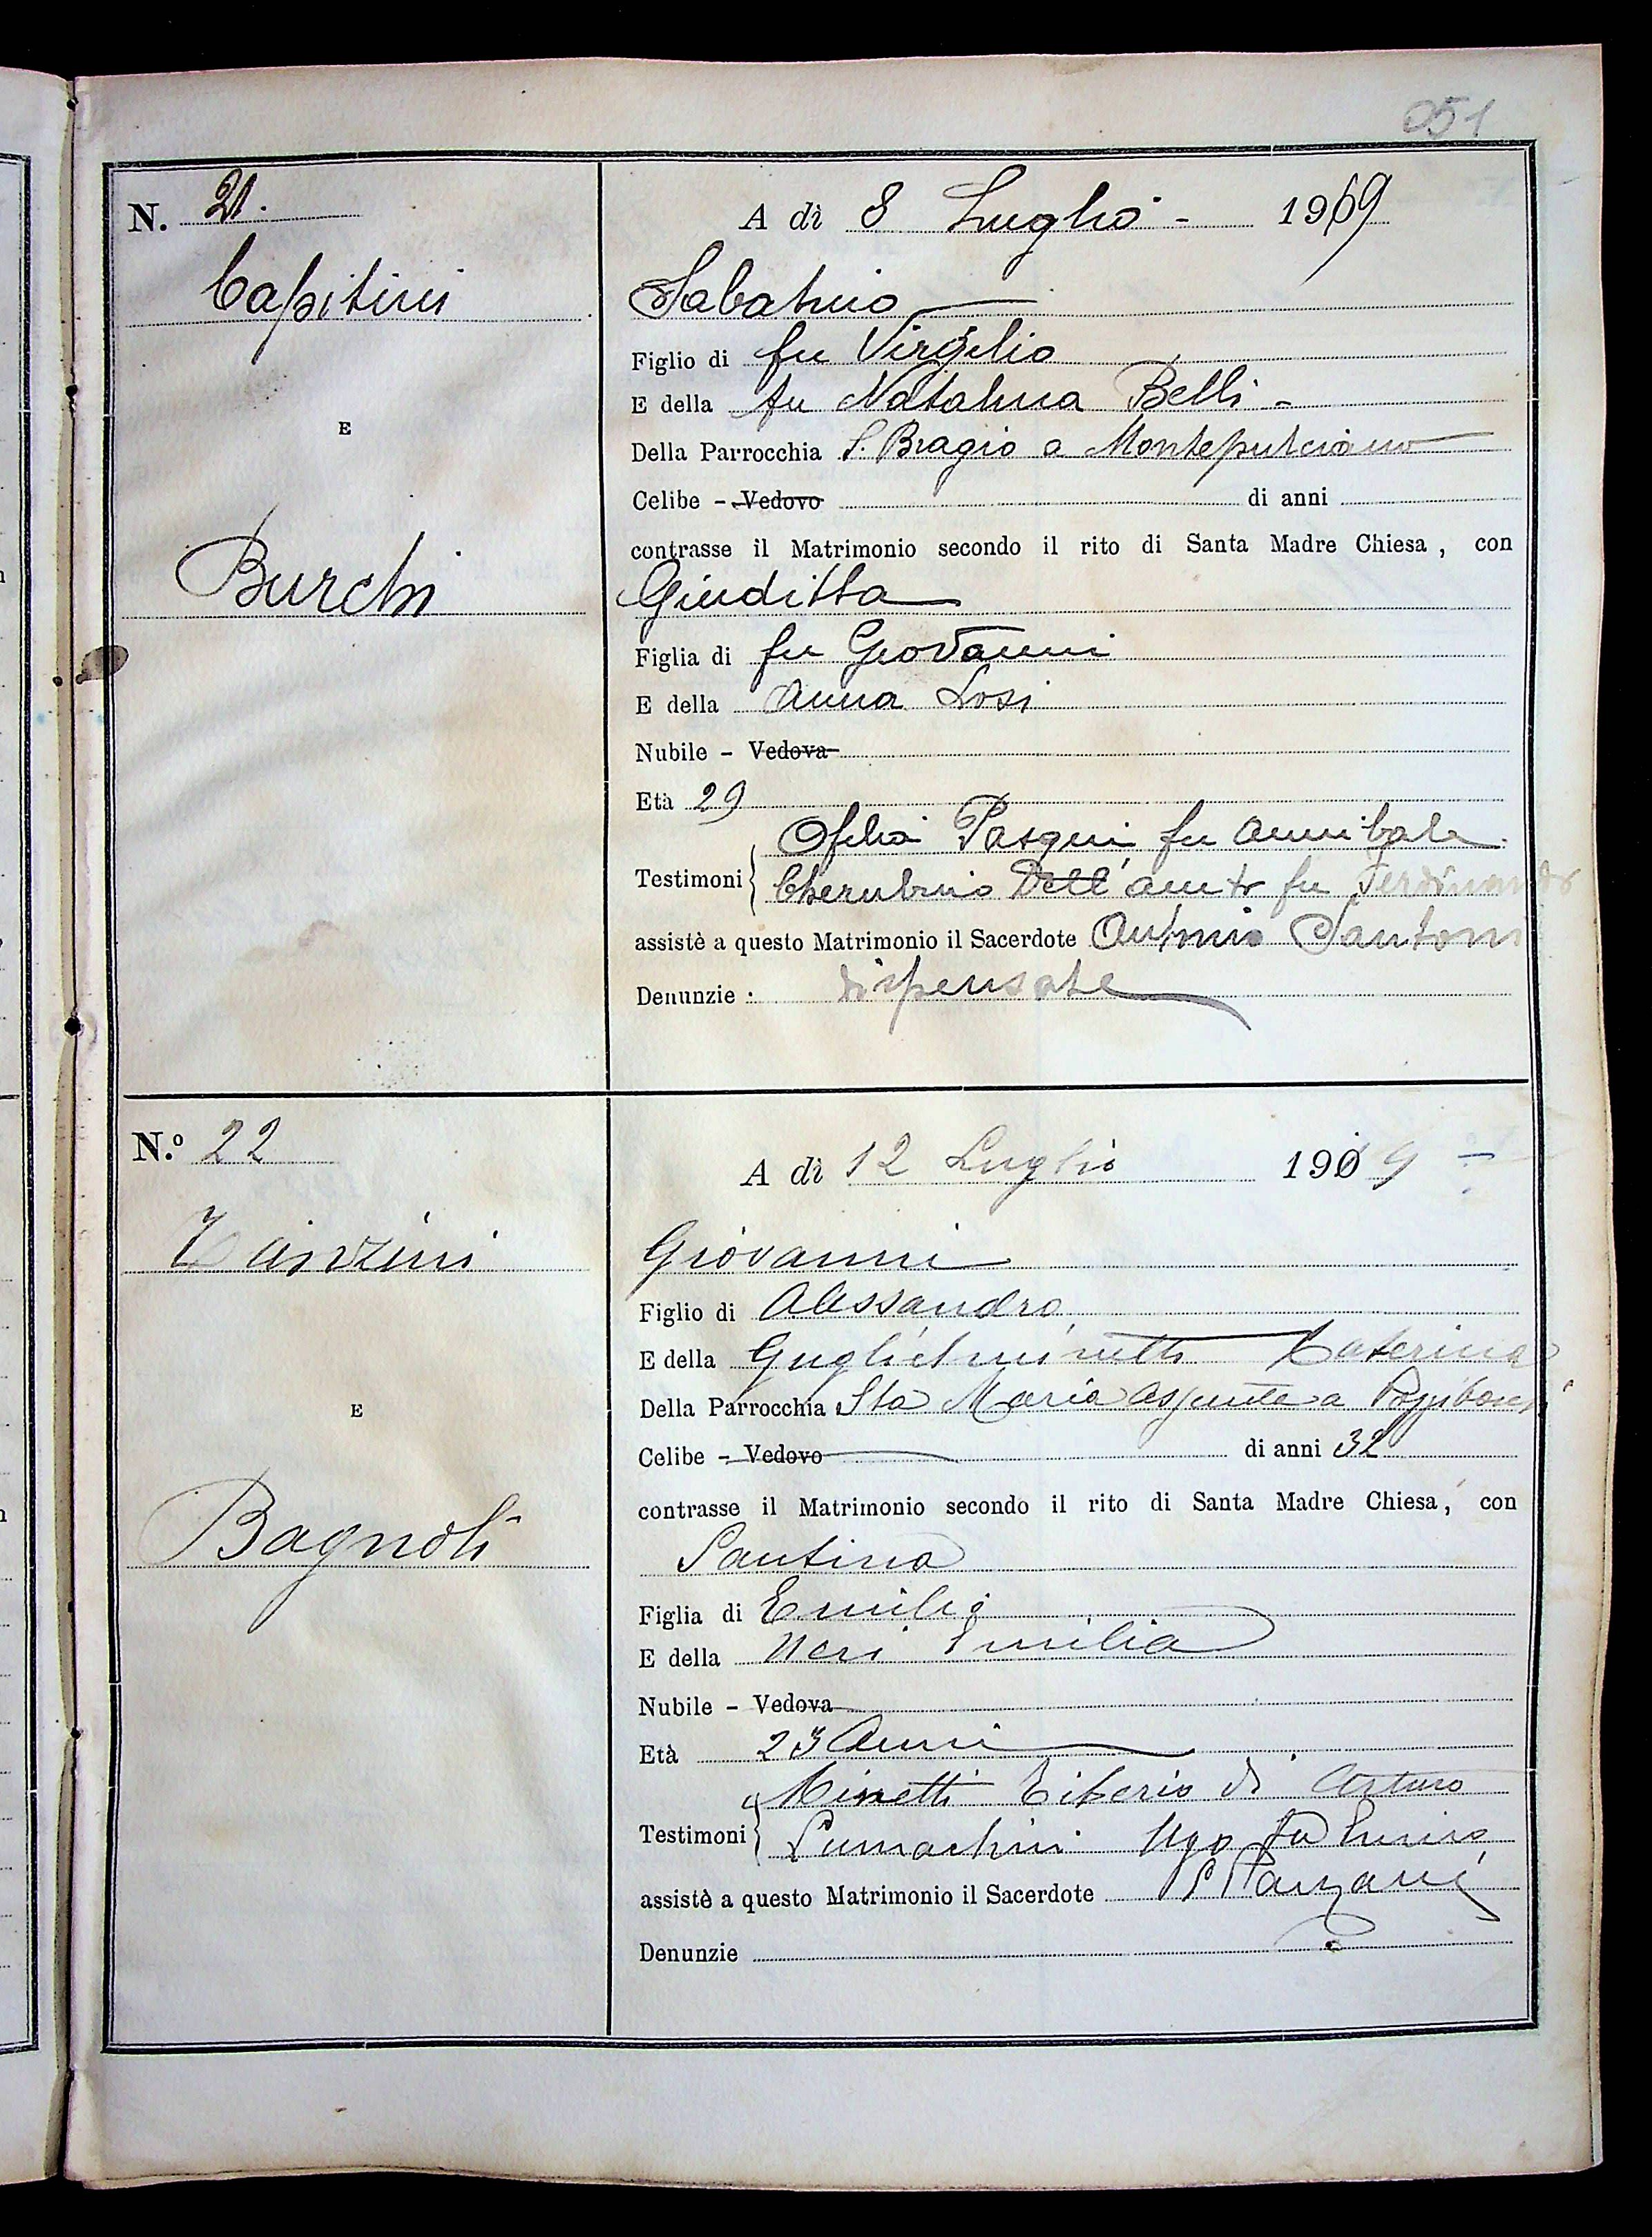 051
N. 21.
A dì 8 Luglio - 1919
Capitini
Sabatino
Figlio di fu Virgilio
E della fu Natalina Belli -
E
Della Parrocchia S. Biagio a Montepulciano
Celibe - Vedovo di anni
contrasse il Matrimonio secondo il rito di Santa Madre Chiesa, con
Burchi
Giuditta
Figlia di fu Giovanni
E della Anna Losi
Nubile - Vedova
Età 29
Ofelia Pasqui fu Annibale
Testimoni Cherubino Dell' fu Ferdinando
assistè a questo Matrimonio il Sacerdote Antonio Santoni
Denunzie : dispensate
N.º 22
A dì 12 Luglio 1919
Giovanni
Figlio di Alessandro
E della Guglielminetti Caterina
E
Della Parrocchia Sta Maria Assunta a Poggibonsi
Celibe - Vedovo di anni 32
contrasse il Matrimonio secondo il rito di Santa Madre Chiesa, con
Bagnoli
Santina
Figlia di Emilio
E della Neri Emilia
Nubile - Vedova
Età 23 Anni
Minetti Tiberio di Arturo
Testimoni Ugo fu
assistè a questo Matrimonio il Sacerdote
Denunzie